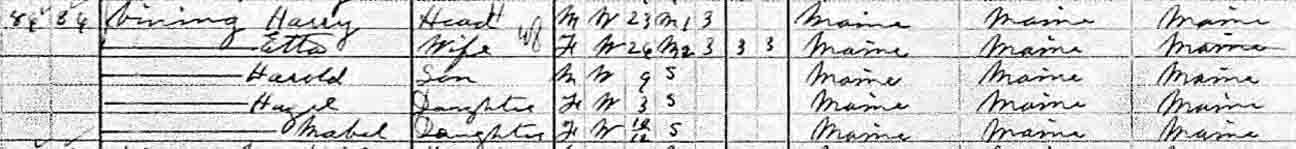 84 84 Vining Harry Head M W 23 M1 3 Maine Maine Maine
Etta Wife F W 26 M2 3 3 3 Maine Maine Maine
Harold Son M W 9 S Maine Maine Maine
Hazel Daughter F W 3 S Maine Maine Maine
Mabel Daughter F W 10/12 S Maine Maine Maine